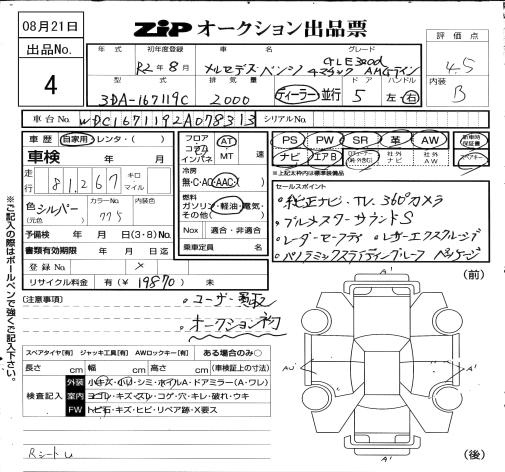 08月21日
ZiP オークション出品票
評価点
4.5
出品No.
4
年式 初年度登録 車名 グレード
R2年8月 メルセデス・ベンツ GLE300d
4マチック AMGライン
内装
B
型式 排気量 ドア ハンドル
3DA-167119C 2000 ディーラー・並行 5 左・右
車台No. WDC1671192A078313 シリアルNo.
車歴 自家用・レンタ・( )
車検 年 月
走行 81,267 キロ マイル
色 シルバー (元色) カラーNo. 775 内装色
予備検 年 月 日(3・8)No.
書類有効期限 年 月 日迄
登録No. ×
リサイクル料金 有(¥ 19870) 未
フロア コラム インパネ AT MT 速
冷房 無・C・AC・AAC・( )
燃料 ガソリン・軽油・電気・その他( )
Nox 適合・非適合
乗車定員 名
PS PW SR 革 AW 新車時保証書
ナビ エアB 社外ナビ 社外AW スペアキー
※上記太枠内は標準装備品
セールスポイント
・純正ナビ・TV・360°カメラ
・ブルメスターサウンドS
・レーダーセーフティ ・レザーエクスクルーシブ
・パノラミックスライディングルーフ パッケージ
(注意事項) ・ユーザー買取
・オークション初
※ご記入の際はボールペンで強くご記入下さい。
スペアタイヤ[有] ジャッキ工具[有] AWロックキー[有] ある場合のみ○
長さ cm 幅 cm 高さ cm (車検証上の寸法)
検査記入
外装 小キズ・小U・シミ・ホイルA・ドアミラー(A・ワレ)
室内 ヨゴレ・キズ・スレ・コゲ・穴・キレ・破れ・ウキ
FW トビ石・キズ・ヒビ・リペア跡・X要ス
RシートU
(前)
A'
AU
A'
A'
(後)